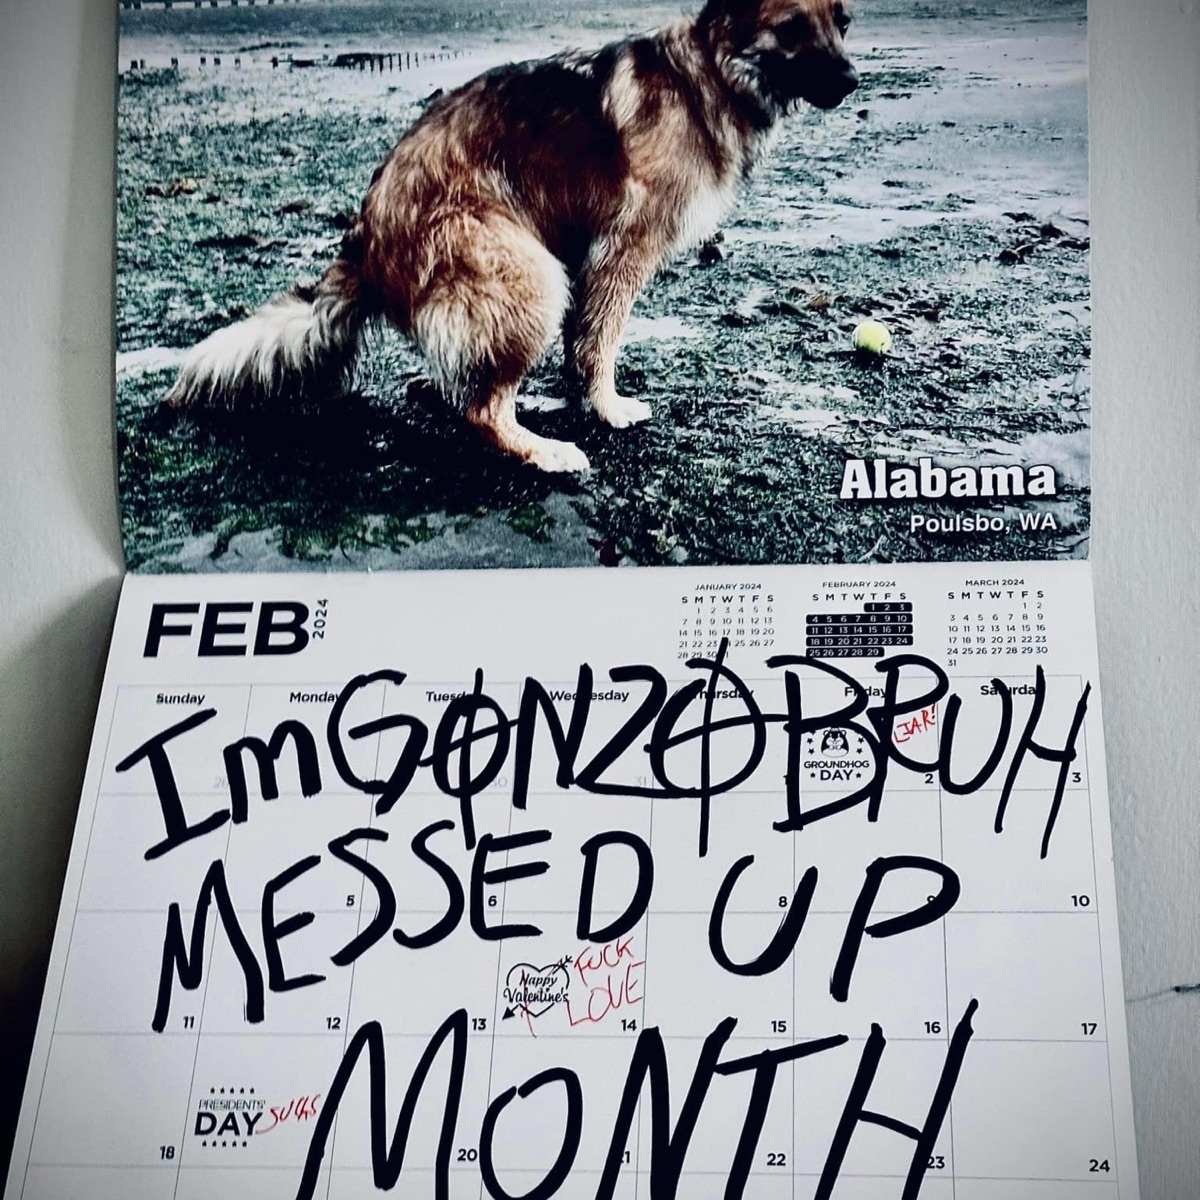 Alabama
Poulsbo, WA
FEB 2024
JANUARY 2024
S M T W T F S
1 2 3 4 5 6
7 8 9 10 11 12 13
14 15 16 17 18 19 20
21 22 23
28 29 30
FEBRUARY 2024
S M T W T F S
1 2 3
4 5 6 7 8 9 10
11 12 13 14 15 16 17
18 19 20 21 22 23 24
25 26 27 28 29
MARCH 2024
S M T W T F S
1 2
3 4 5 6 7 8 9
10 11 12 13 14 15 16
17 18 19 20 21 22 23
24 25 26 27 28 29 30
31
Sunday Monday Tuesday Wednesday Thursday Friday Saturday
ImGONZOBRUH
LIAR!
GROUNDHOG
DAY
31 1 2 3
MESSED UP
5 6 8 9 10
Happy
Valentine's
FUCK
LOVE
11 12 13 14 15 16 17
MONTH
PRESIDENTS'
DAY SUCKS
18 20 21 22 23 24